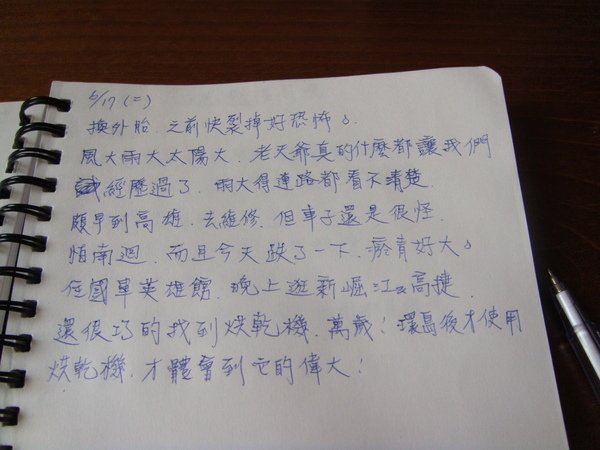 6/17 (二)
換外胎. 之前快裂掉好恐怖。
風大雨大太陽大. 老天爺真的什麼都讓我們
經歷過了. 雨大得連路都看不清楚.
頗早到高雄. 去維修. 但車子還是很怪.
怕南迴. 而且今天跌了一下. 瘀青好大。
住國軍英雄館. 晚上逛新崛江&高捷.
還很巧的找到烘乾機. 萬歲! 環島後才使用
烘乾機. 才體會到它的偉大!